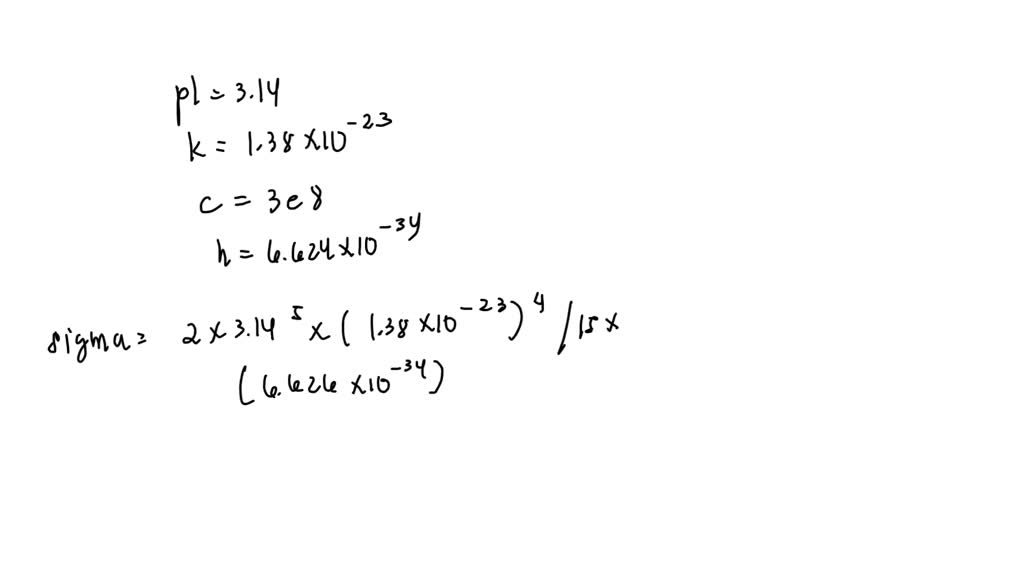 pl = 3.14
k = 1.38 × 10^-23
c = 3e8
h = 6.624 × 10^-34
sigma = 2 × 3.14^5 × (1.38 × 10^-23)^4 / 15 ×
(6.626 × 10^-34)